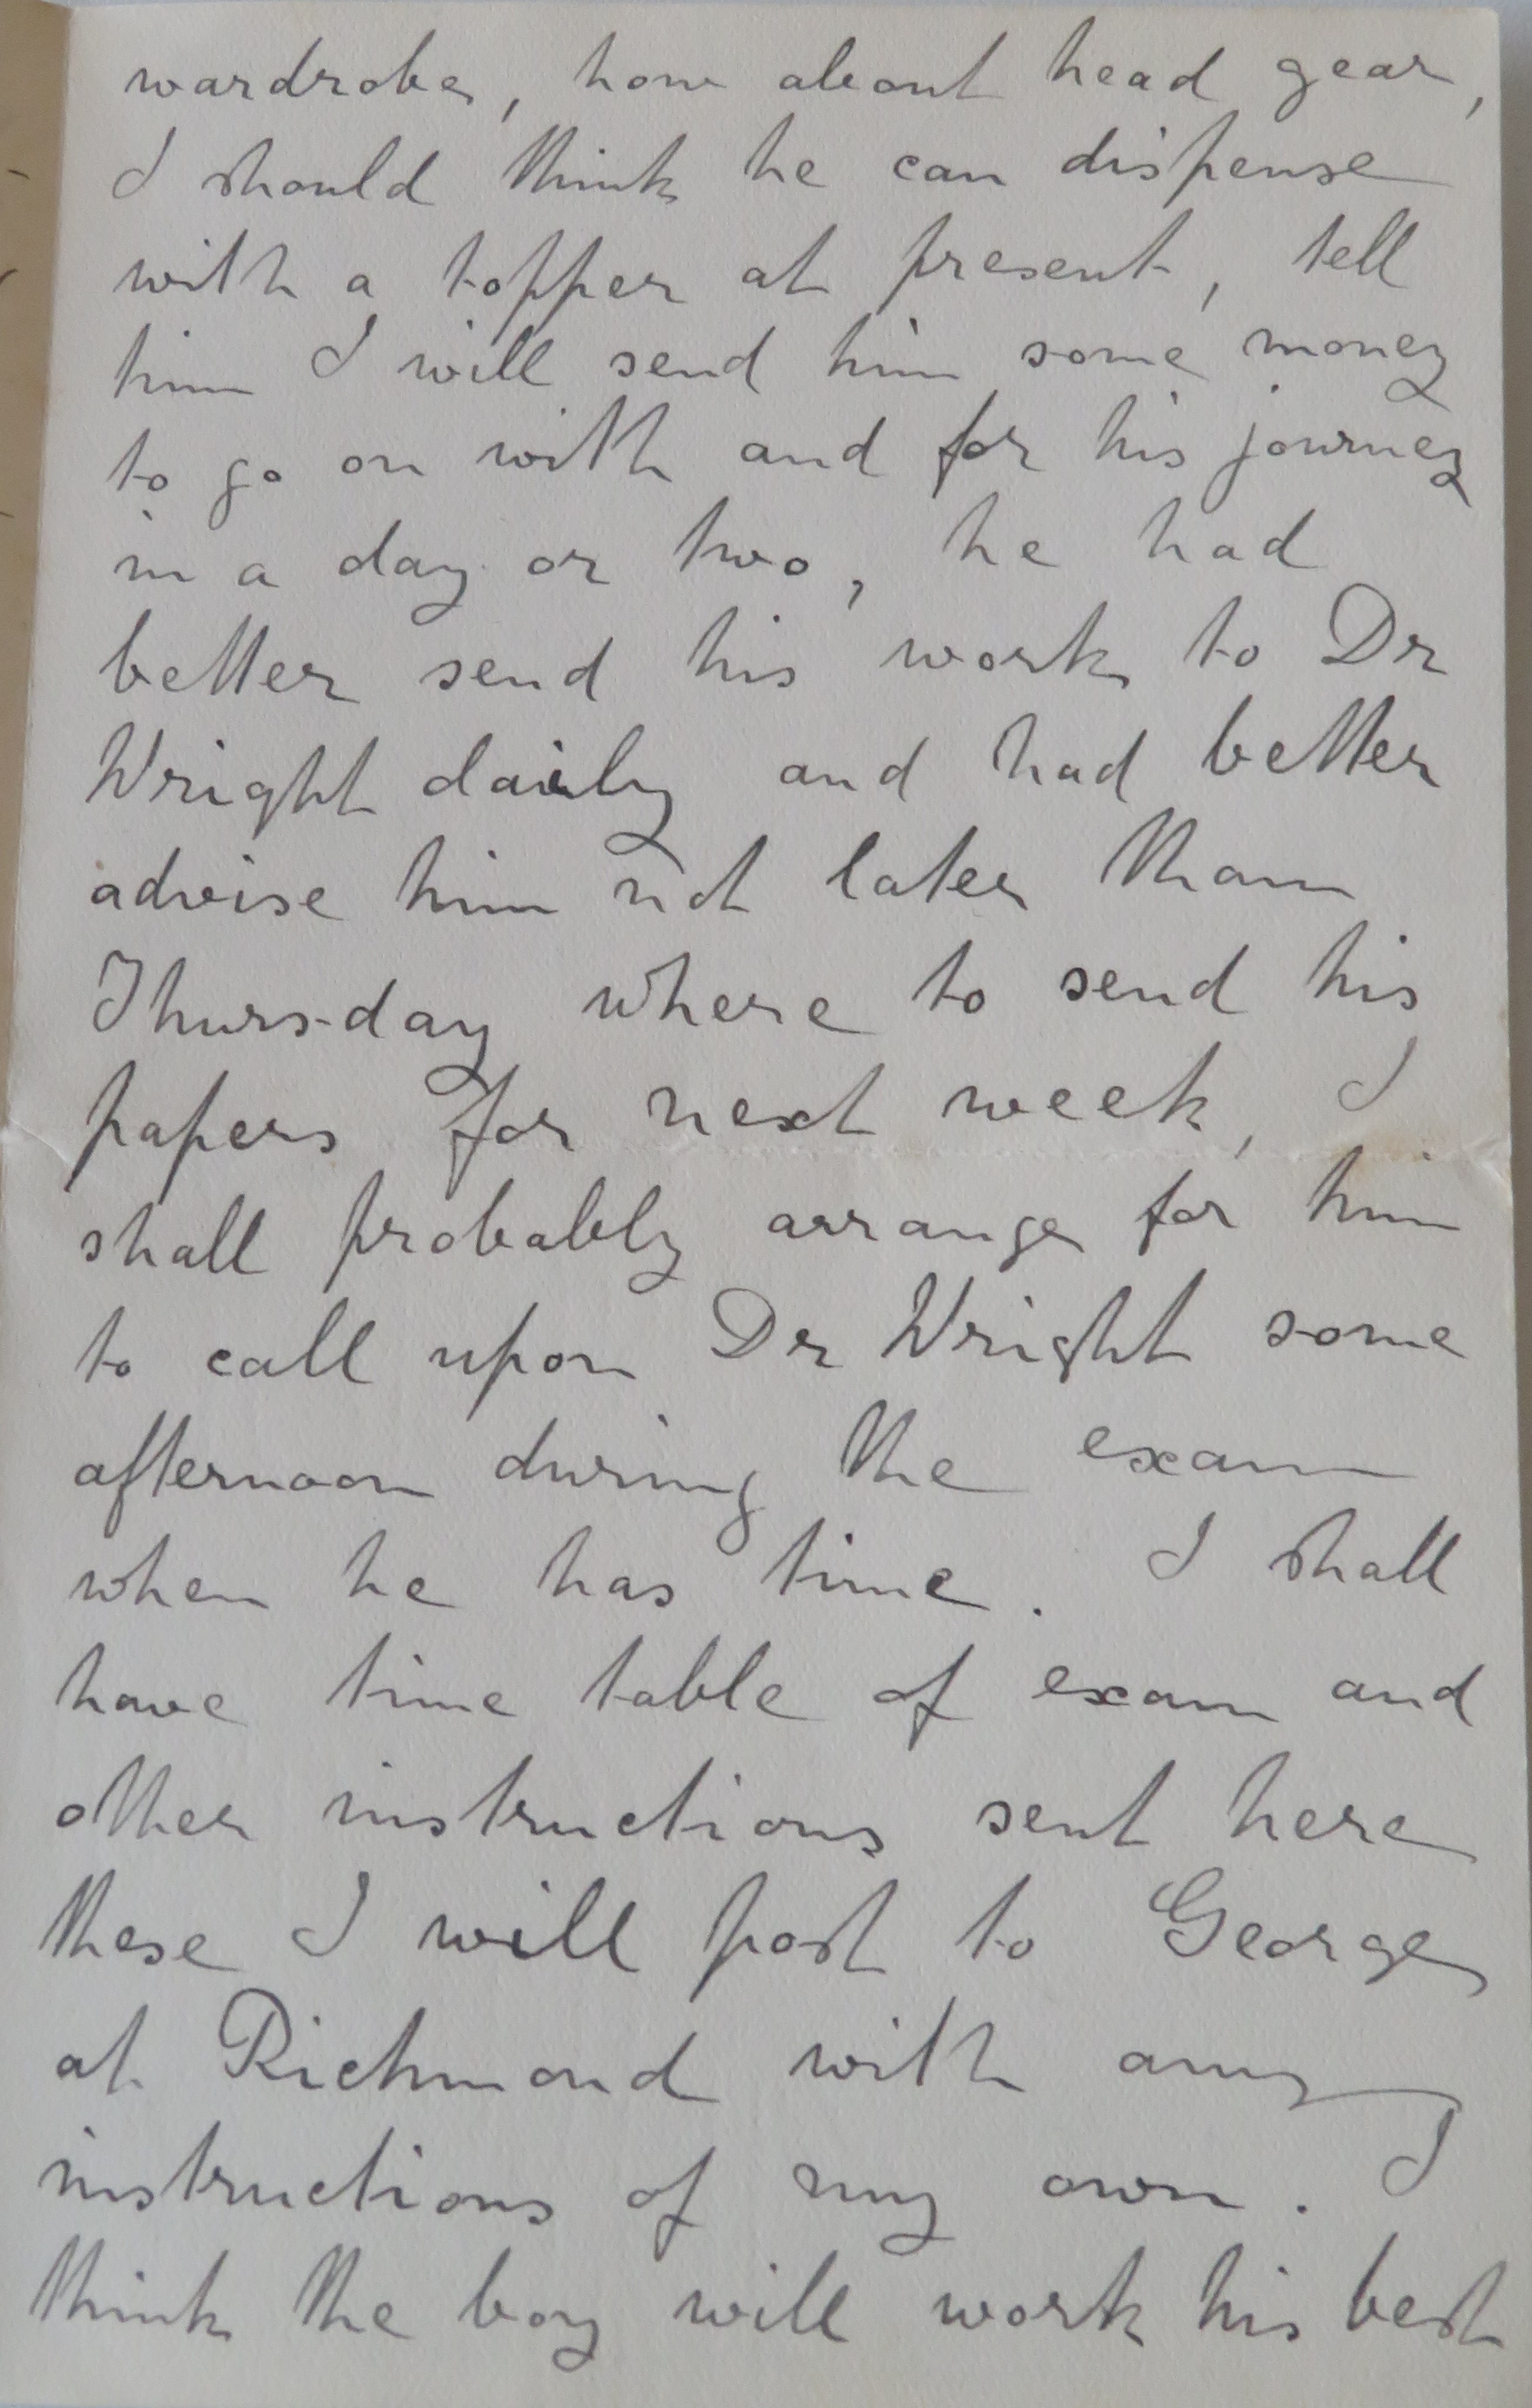 wardrobe, how about head gear,
I should think he can dispense
with a topper at present, tell
him I will send him some money
to go on with and for his journey
in a day or two, he had
better send his work to Dr
Wright daily and had better
advise him not later than
Thursday where to send his
papers for next week, I
shall probably arrange for him
to call upon Dr Wright some
afternoon during the exam
when he has time. I shall
have time table of exam and
other instructions sent here
these I will post to George
at Richmond with any
instructions of my own. I
think the boy will work his best